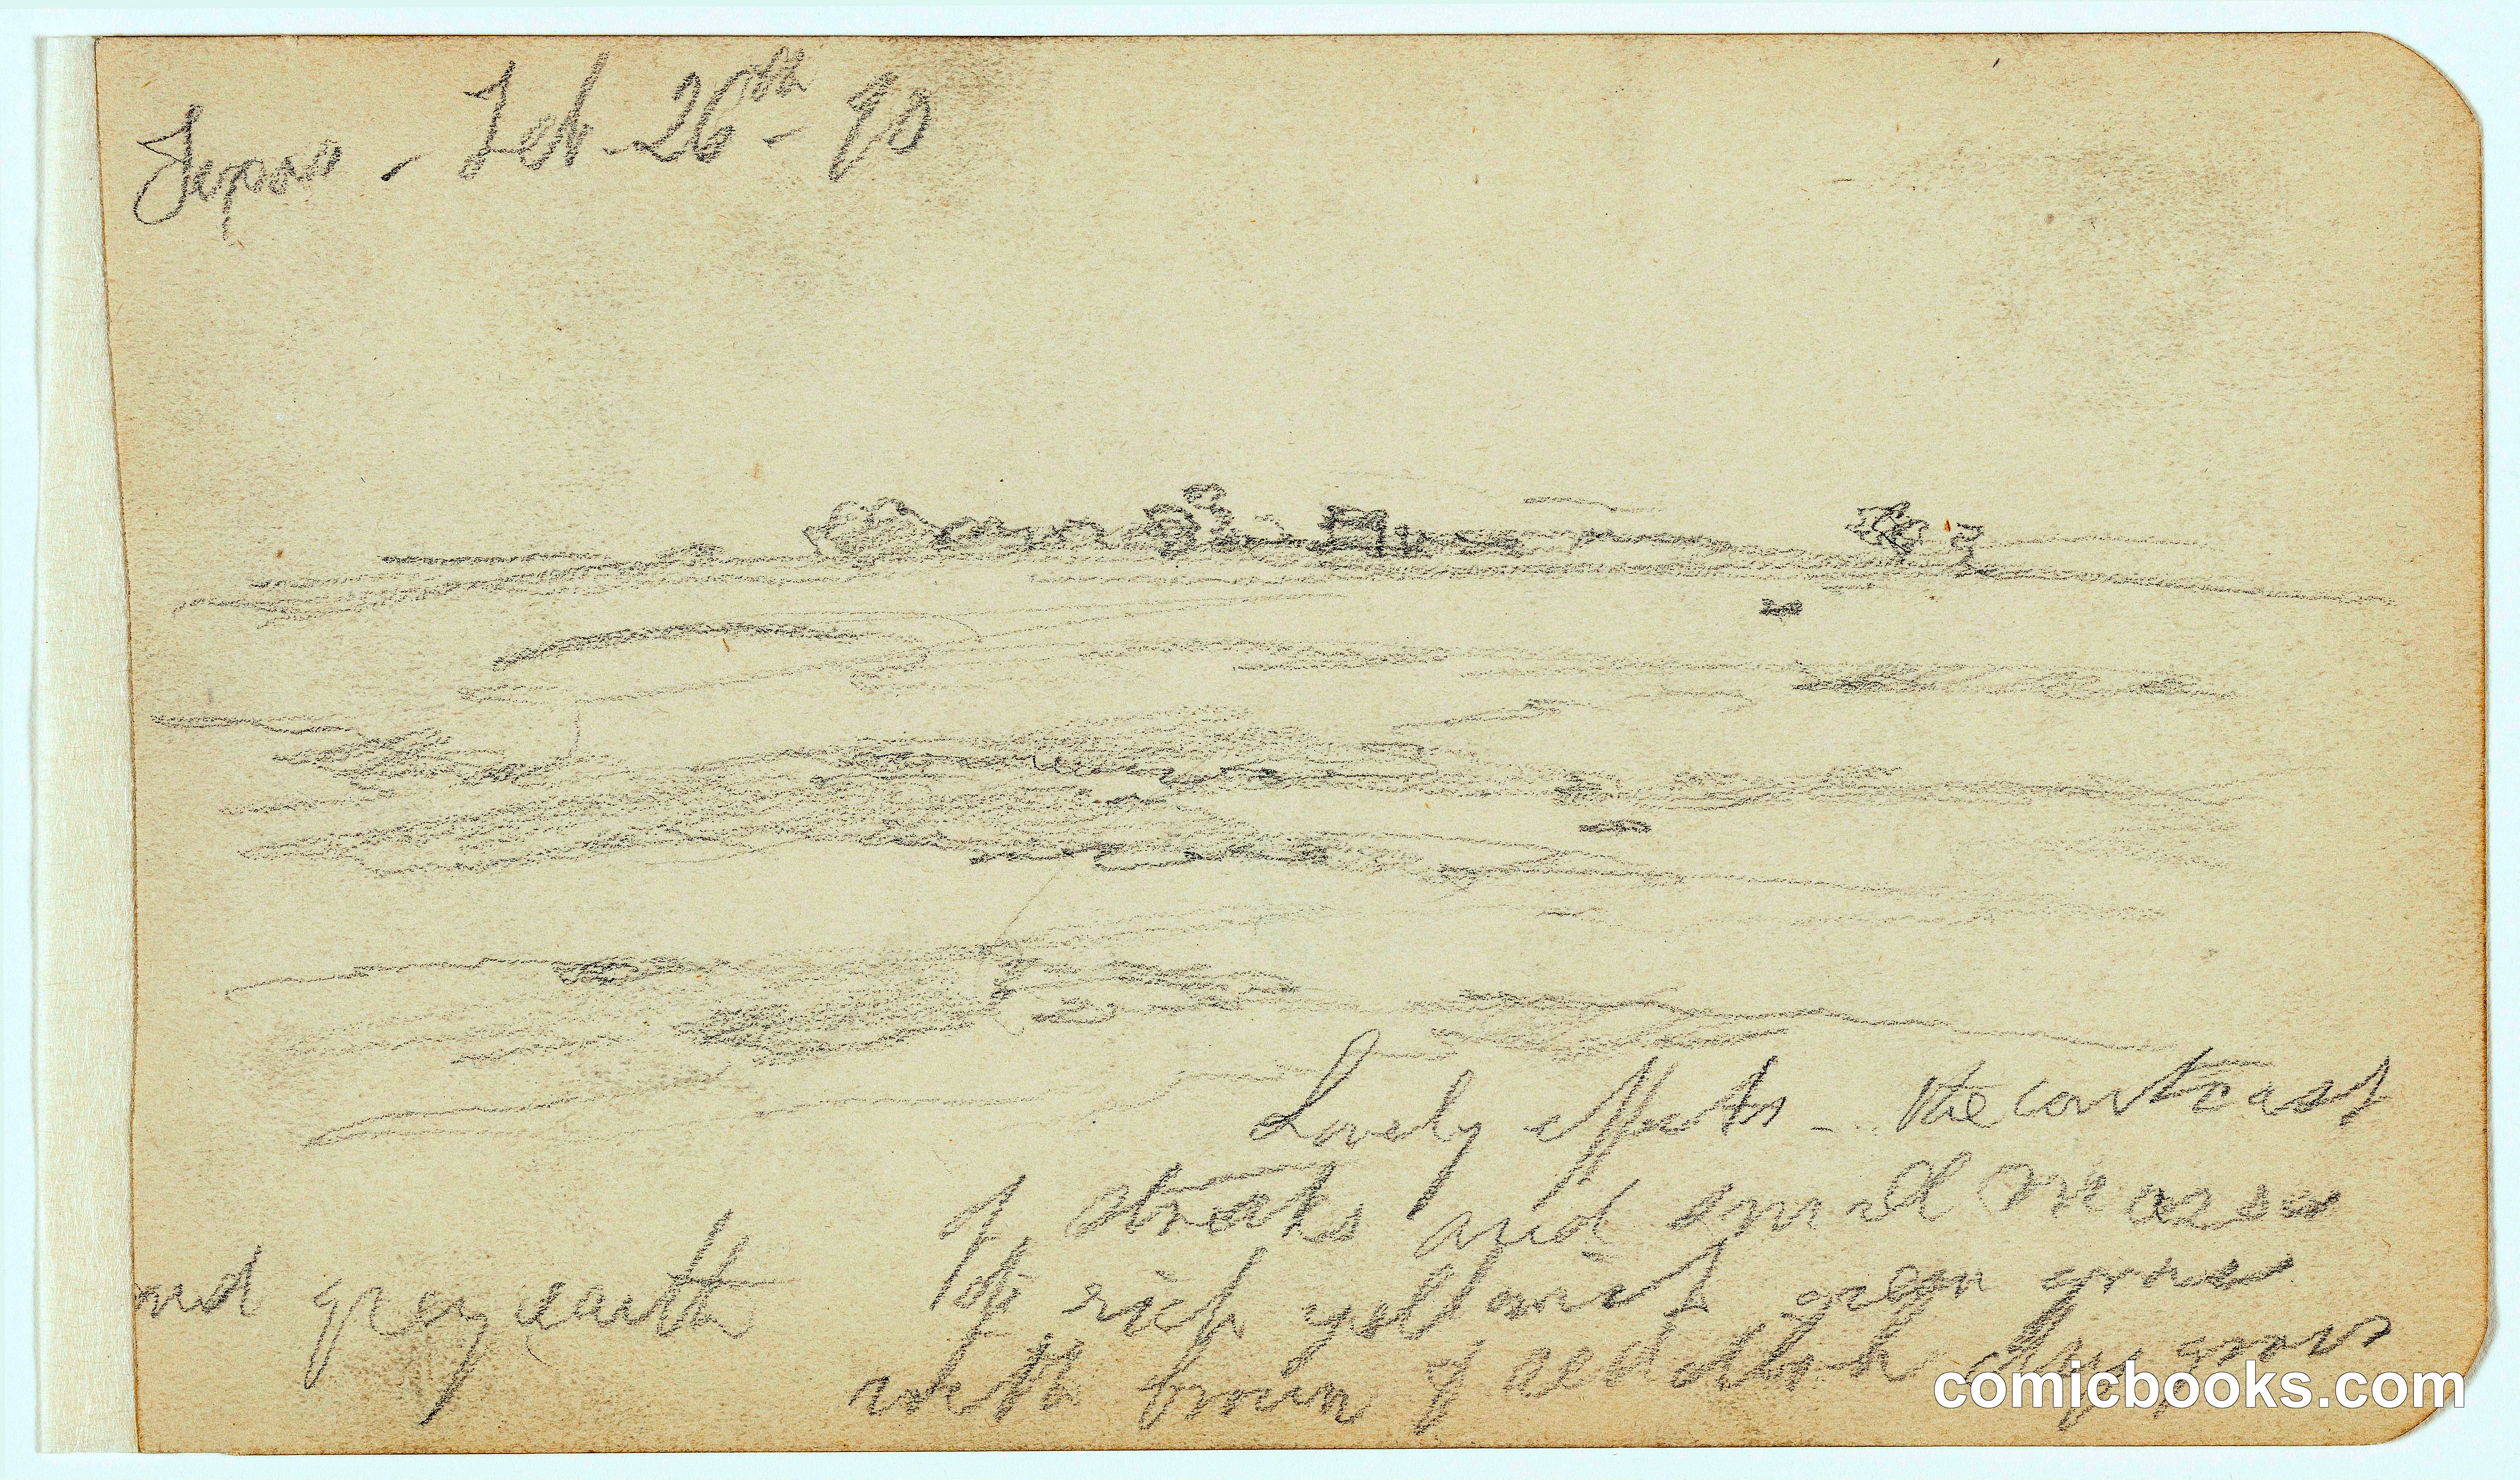 Feb - 26th - 90
Lovely effects - the contrast
of streaks and small masses
of rich yellowish green grass
with brown & reddish dry grass
and grey earth
comicbooks.com